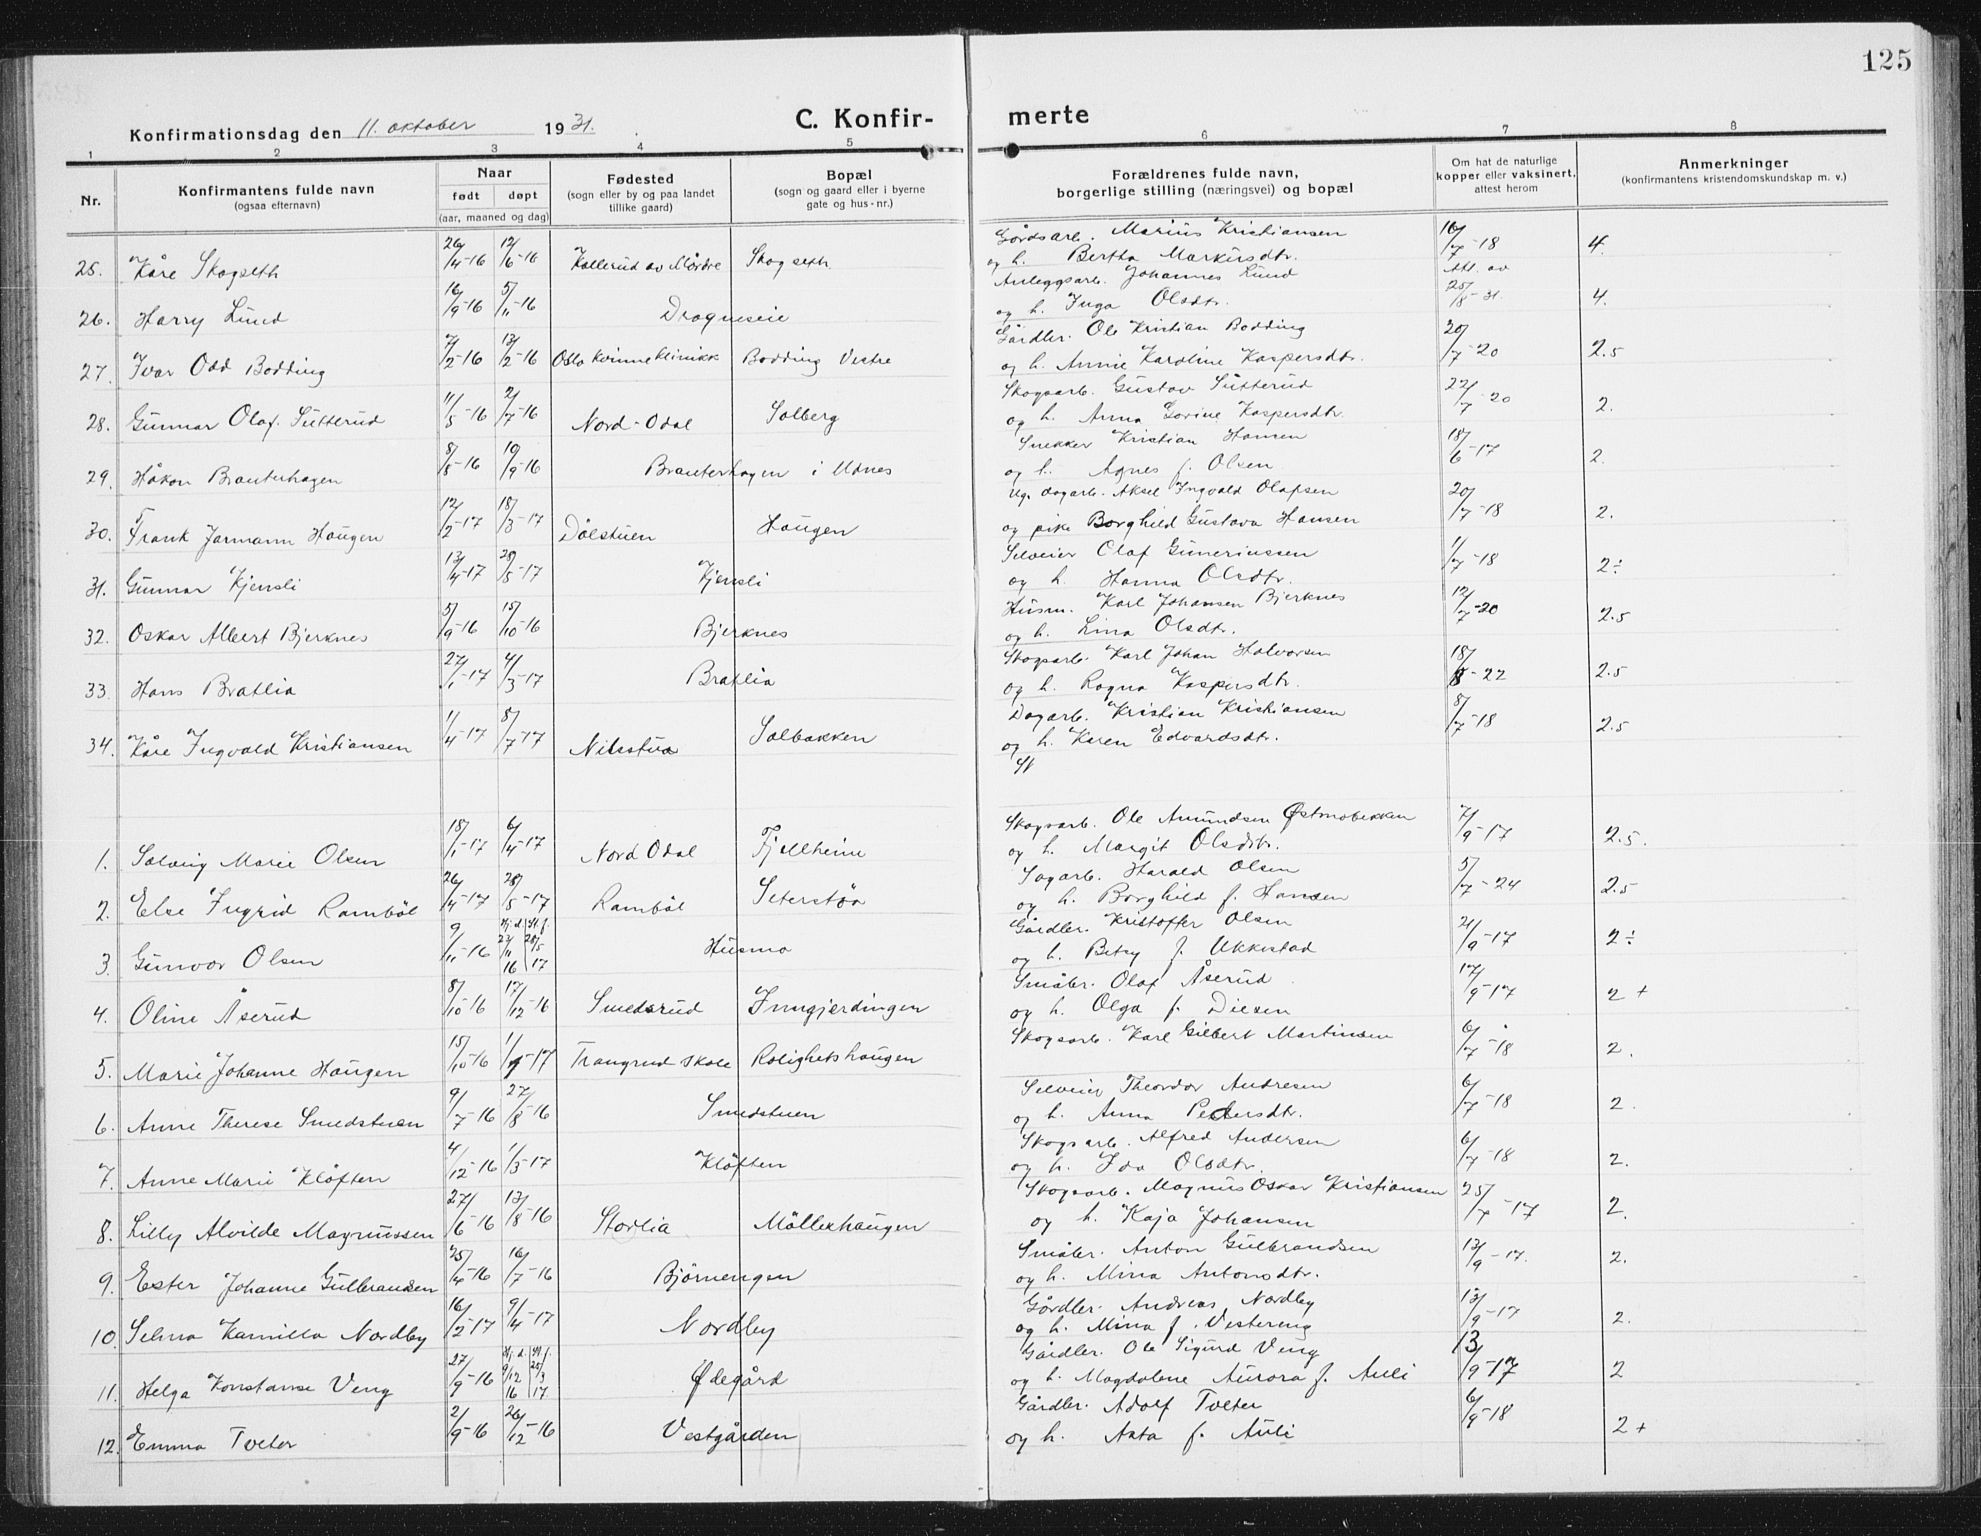 125
Konfirmationsdag den 11. oktober 1931. C. Konfirmerte
1 2 3 4 5 6 7 8
Nr. Konfirmantens fulde navn (ogsaa efternavn) Naar født døpt (aar, maaned og dag) Fødested (sogn eller by og paa landet tillike gaard) Bopæl (sogn og gaard eller i byerne gate og hus-nr.) Forældrenes fulde navn, borgerlige stilling (næringsvei) og bopæl Om hat de naturlige kopper eller vaksinert, attest herom Anmerkninger (konfirmantens kristendomskundskap m. v.)
25. Kåre Skogseth 26/4-16 12/6-16 Kollerud av Mårdre Skogseth Gårdsarb. Marius Kristiansen og h. Bertha Markusdtr. 16/7-18 4.
26. Harry Lund 16/9-16 5/11-16 Dragneseie Anleggsarb. Johannes Lund og h. Inga Olsdtr. Att. av 25/8-31. 4.
27. Ivar Odd Bodding 7/2-16 13/2-16 Oslo kvinneklinikk Bodding Vestre Gårdbr. Ole Kristian Bodding og h. Annie Karoline Kaspersdtr. 20/7-20 2.5
28. Gunnar Olaf Sutterud 11/5-16 2/7-16 Nord-Odal Solberg Skogsarb. Gustav Sutterud og h. Anna Lovine Kaspersdtr. 22/7-20 2.
29. Håkon Brauterhagen 8/8-16 10/9-16 Brauterhagen i Udnes Snekker Kristian Hansen og h. Agnes f. Olsen 18/6-17 2.
30. Frank Jarmann Haugen 12/2-17 18/3-17 Dålstuen Haugen Ug. dagarb. Aksel Ingvald Olafsen og pike Borghild Gustava Hansen 20/7-18 2.
31. Gunnar Kjensli 13/4-17 28/5-17 Kjensli Selveier Olaf Gunerinssen og h. Hanna Olsdtr. 1/7-18 2÷
32. Oskar Albert Bjerknes 5/9-16 15/10-16 Bjerknes Husm. Karl Johansen Bjerknes og h. Lina Olsdtr. 12/7-20 2.5
33. Hans Bratlia 27/1-17 4/3-17 Bratlia Skogsarb. Karl Johan Halvorsen og h. Ragna Kaspersdtr. 18/8-22 2.5
34. Kåre Ingvald Kristiansen 1/4-17 8/7-17 Nilsstua Solbakken Dagarb. Kristian Kristiansen og h. Karen Edvardsdtr. 8/7-18 2.5
1. Solveig Marie Olsen 18/1-17 6/4-17 Nord Odal Fjellheim Skogsarb. Ole Amundsen Østmobekken og h. Margit Olsdtr. 7/9-17 2.5.
2. Else Ingrid Rambøl 26/4-17 28/5-17 Rambøl Seterstøa Sagarb. Harald Olsen og h. Borghild f. Hansen 5/7-24 2.5
3. Gunvor Olsen 9/11-16 Hj. d. 27/11 16 St. f. 28/5 17 Husmo Gårdbr. Kristoffer Olsen og h. Betsy f. Ukkestad 21/9-17 2÷
4. Oline Åserud 8/10-16 17/12-16 Smedsrud Inngjerdingen Småbr. Olaf Åserud og h. Olga f. Diesen 17/9-17 2+
5. Marie Johanne Haugen 15/10-16 1/1-17 Trangrud skole Rolighetshaugen Skogsarb. Karl Gilbert Martinsen 6/7-18 2.
6. Anne Therese Smedstuen 9/7-16 27/8-16 Smedstuen Selveier Theordor Andresen og h. Anna Pedersdtr. 6/7-18 2.
7. Anne Marie Kløften 4/12-16 1/3-17 Kløften Skogsarb. Alfred Andersen og h. Ida Olsdtr. 6/7-18 2.
8. Lilly Alvilde Magnussen 27/6-16 13/8-16 Storlia Møllerhaugen Skogsarb. Magnus Oskar Kristiansen og h. Kaja Johansen 25/7-17 2.
9. Ester Johanne Gulbrandsen 25/4-16 16/7-16 Bjørnengen Småbr. Anton Gulbrandsen og h. Mina Antonsdtr. 13/9-17. 2.
10. Selma Kamilla Nordby 16/2-17 9/4-17 Nordby Gårdbr. Andreas Nordby og h. Mina f. Vestereng 13/9-17 2.
11. Helga Konstanse Veng 27/9-16 Hj. d. 9/12 16 St. f. 25/3 17. Ødegård Gårdbr. Ole Sigurd Veng og h. Magdalene Aurora f. Auli 13/9-17 2
12. Emma Tveter 2/9-16 26/12-16 Vestgården Gårdbr. Adolf Tveter og h. Asta f. Auli 6/9-18 2+